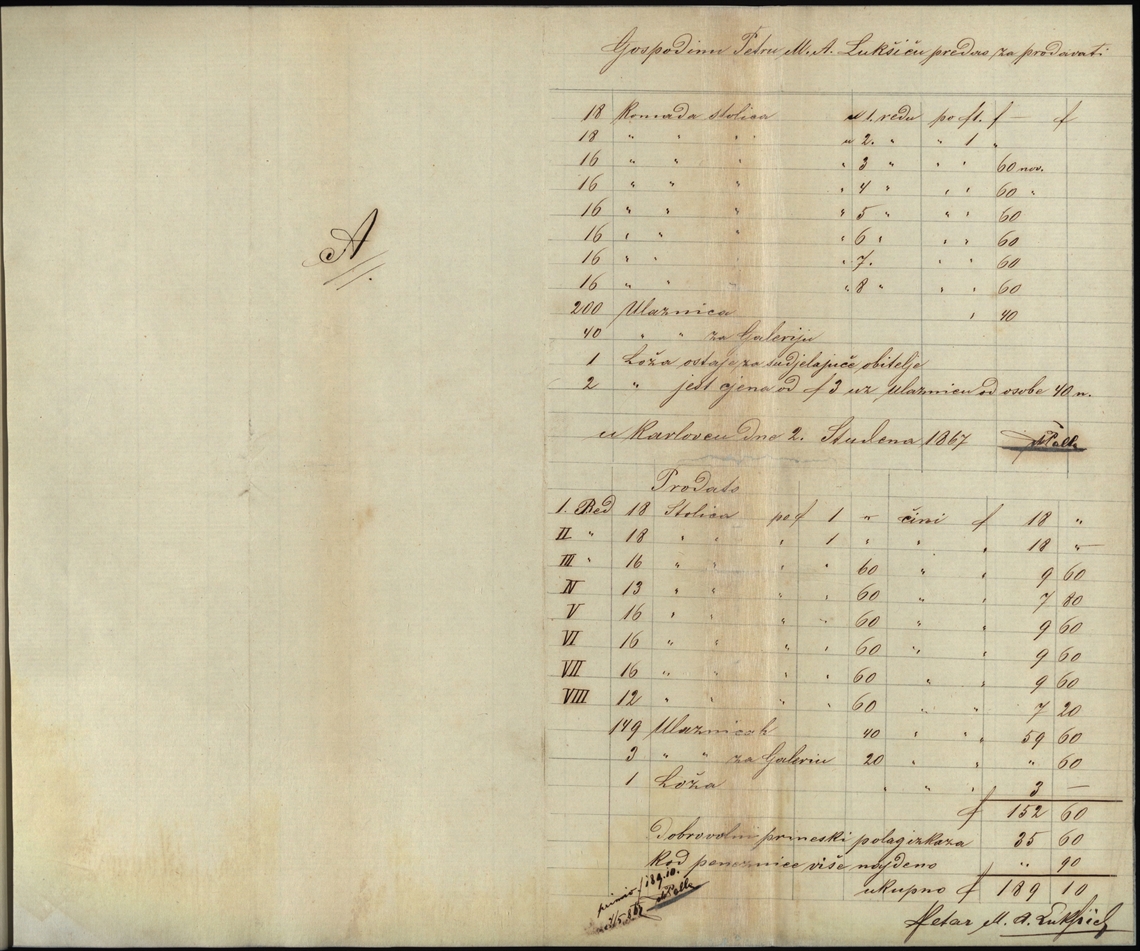 A
Gospodinu Petru M. A. Lukšiću predas za prodavati
18 Komada stolica u 1. redu po ft. f — f
18 " " " u 2. " " 1 "
16 " " " " 3 " " " 60 nov.
16 " " " " 4 " " " 60 "
16 " " " " 5 " " " 60
16 " " " " 6 " " " 60
16 " " " " 7. " " 60
16 " " " " 8 " " " 60
200 Ulaznica " 40
40 " " za Galeriju
1 Loža ostaje za sudjelajuće obitelje
2 " jest cjena od f 3 uz Ulaznicu od osobe 40 n.
u Karlovcu dne 2. Studena 1867
Prodato
1. Red 18 Stolica po f 1 " čini f 18 "
II " 18 " " " 1 " " " 18 "
III " 16 " " " " 60 " " 9 60
IV 13 " " " " 60 " " 7 80
V 16 " " " " 60 " " 9 60
VI 16 " " " " 60 " " 9 60
VII 16 " " " " 60 " " 9 60
VIII 12 " " " " 60 " " 7 20
149 Ulaznicah 40 " " " 59 60
3 " " za Galeriu 20 " " " " 60
1 Loža " " " 3 —
f 152 60
Dobrovolni prineski polag izkaza 35 60
Kod peneznice više najdeno " 90
ukupno f 189 10
primio f 189.10.
Petar M. A. Lukšić